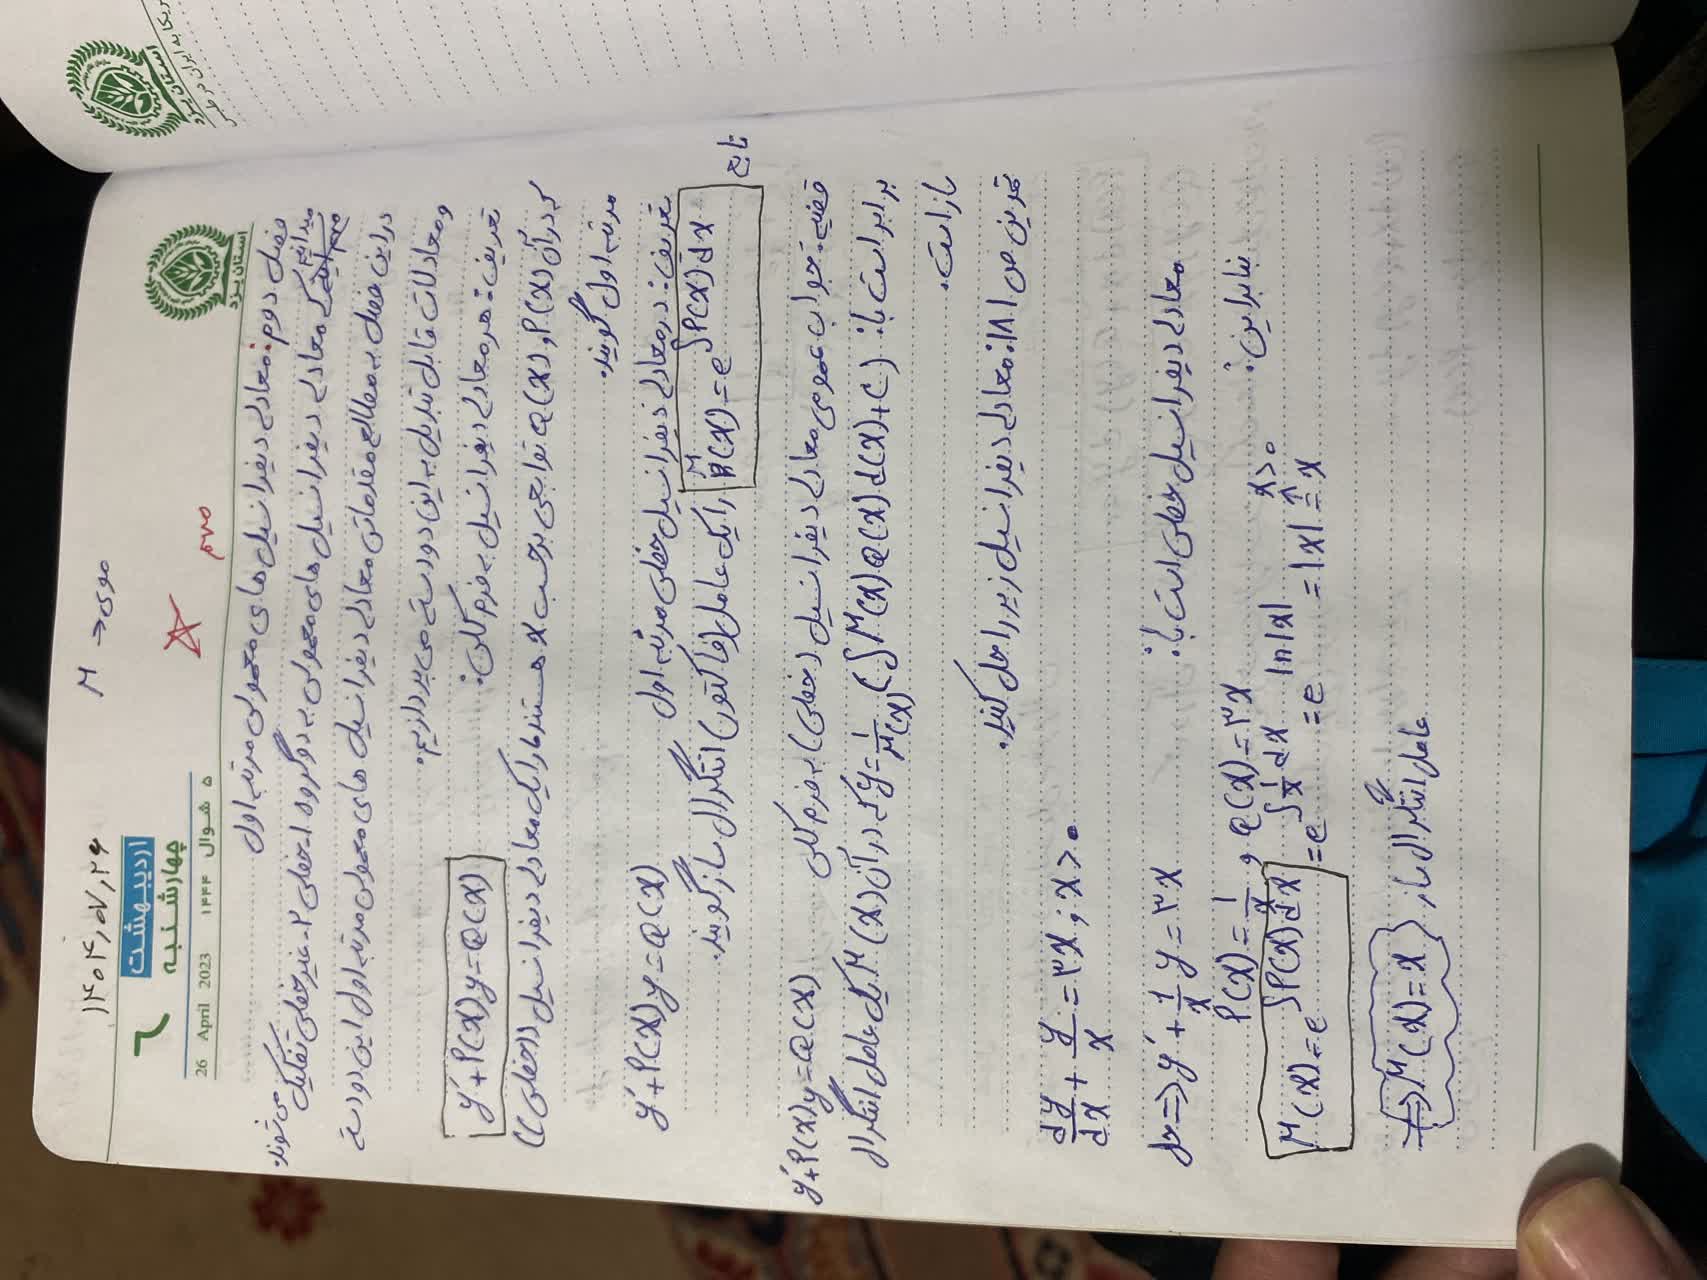 ۱۴۰۴,۰۷,۲۶
M → موی
۶
اردیبهشت
چهارشنبه
26 April 2023 ۱۴۴۴ شوال ۵
استان یزد
مهم
فصل دوم: معادلی دیفرانسیل های معمولی مرتبه اول
میدانیم که معادلی دیفرانسیل های معمولی به دو گروه ۱- خطی ۲- غیرخطی تفکیک می شوند.
در این فصل به مطالع مقدماتی معادلی دیفرانسیل های معمولی مرتبه اول این دو دسته
و معادلات قابل تبدیل به این دو دسته می پردازیم.
تعریف: هر معادلی دیفرانسیل به فرم کلی:
y′+P(x)y=Q(x)
که در آن P(x) و Q(x) توابعی برحسب x هستند را یک معادلی دیفرانسیل ((خطی))
مرتبه اول گویند.
تعریف: در معادلی دیفرانسیل خطی مرتبه اول y′+P(x)y=Q(x)
تابع M(x)=e^∫P(x)dx را یک عامل (فاکتور) انتگرال ساز گویند.
قضیه: جواب عمومی معادلی دیفرانسیل (خطی) به فرم کلی y′+P(x)y=Q(x)
برابر است با: y=1/M(x) (∫M(x)Q(x)d(x)+C) که در آن M(x) یک عامل انتگرال
ساز است.
تمرین ص ۱۸: معادلی دیفرانسیل زیر را حل کنید.
dy/dx + y/x = ۳x ; x>0
حل ⇒ y′ + 1/x y = ۳x معادلی دیفرانسیل خطی است با:
P(x)=1/x و Q(x)=۳x بنابراین:
M(x)=e^∫P(x)dx = e^∫1/x dx = e^ln|x| = |x| = x x>0
⇒ M(x)=x عامل انتگرال ساز